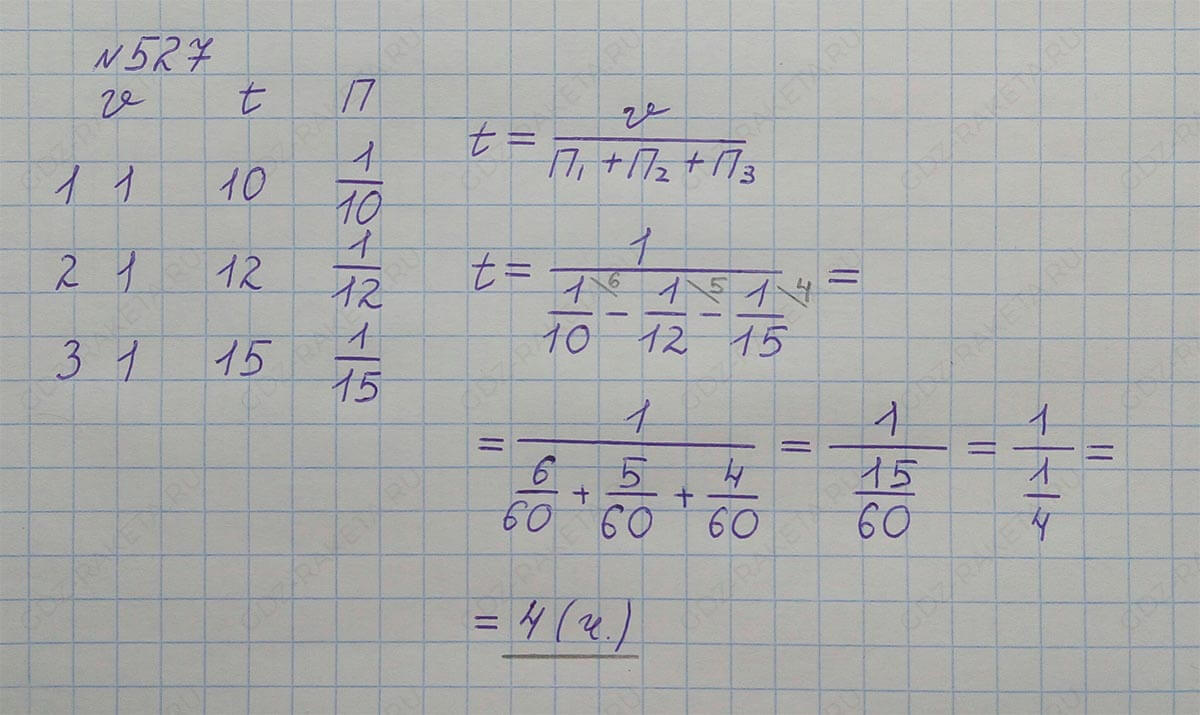 №527
v t П
1 1 10 1/10
2 1 12 1/12
3 1 15 1/15
t = v/(П₁ + П₂ + П₃)
t = 1/(1/10\6 - 1/12\5 - 1/15\4) =
= 1/(6/60 + 5/60 + 4/60) = 1/(15/60) = 1/(1/4) =
= 4 (ч.)
GDZ-RAKETA.RU